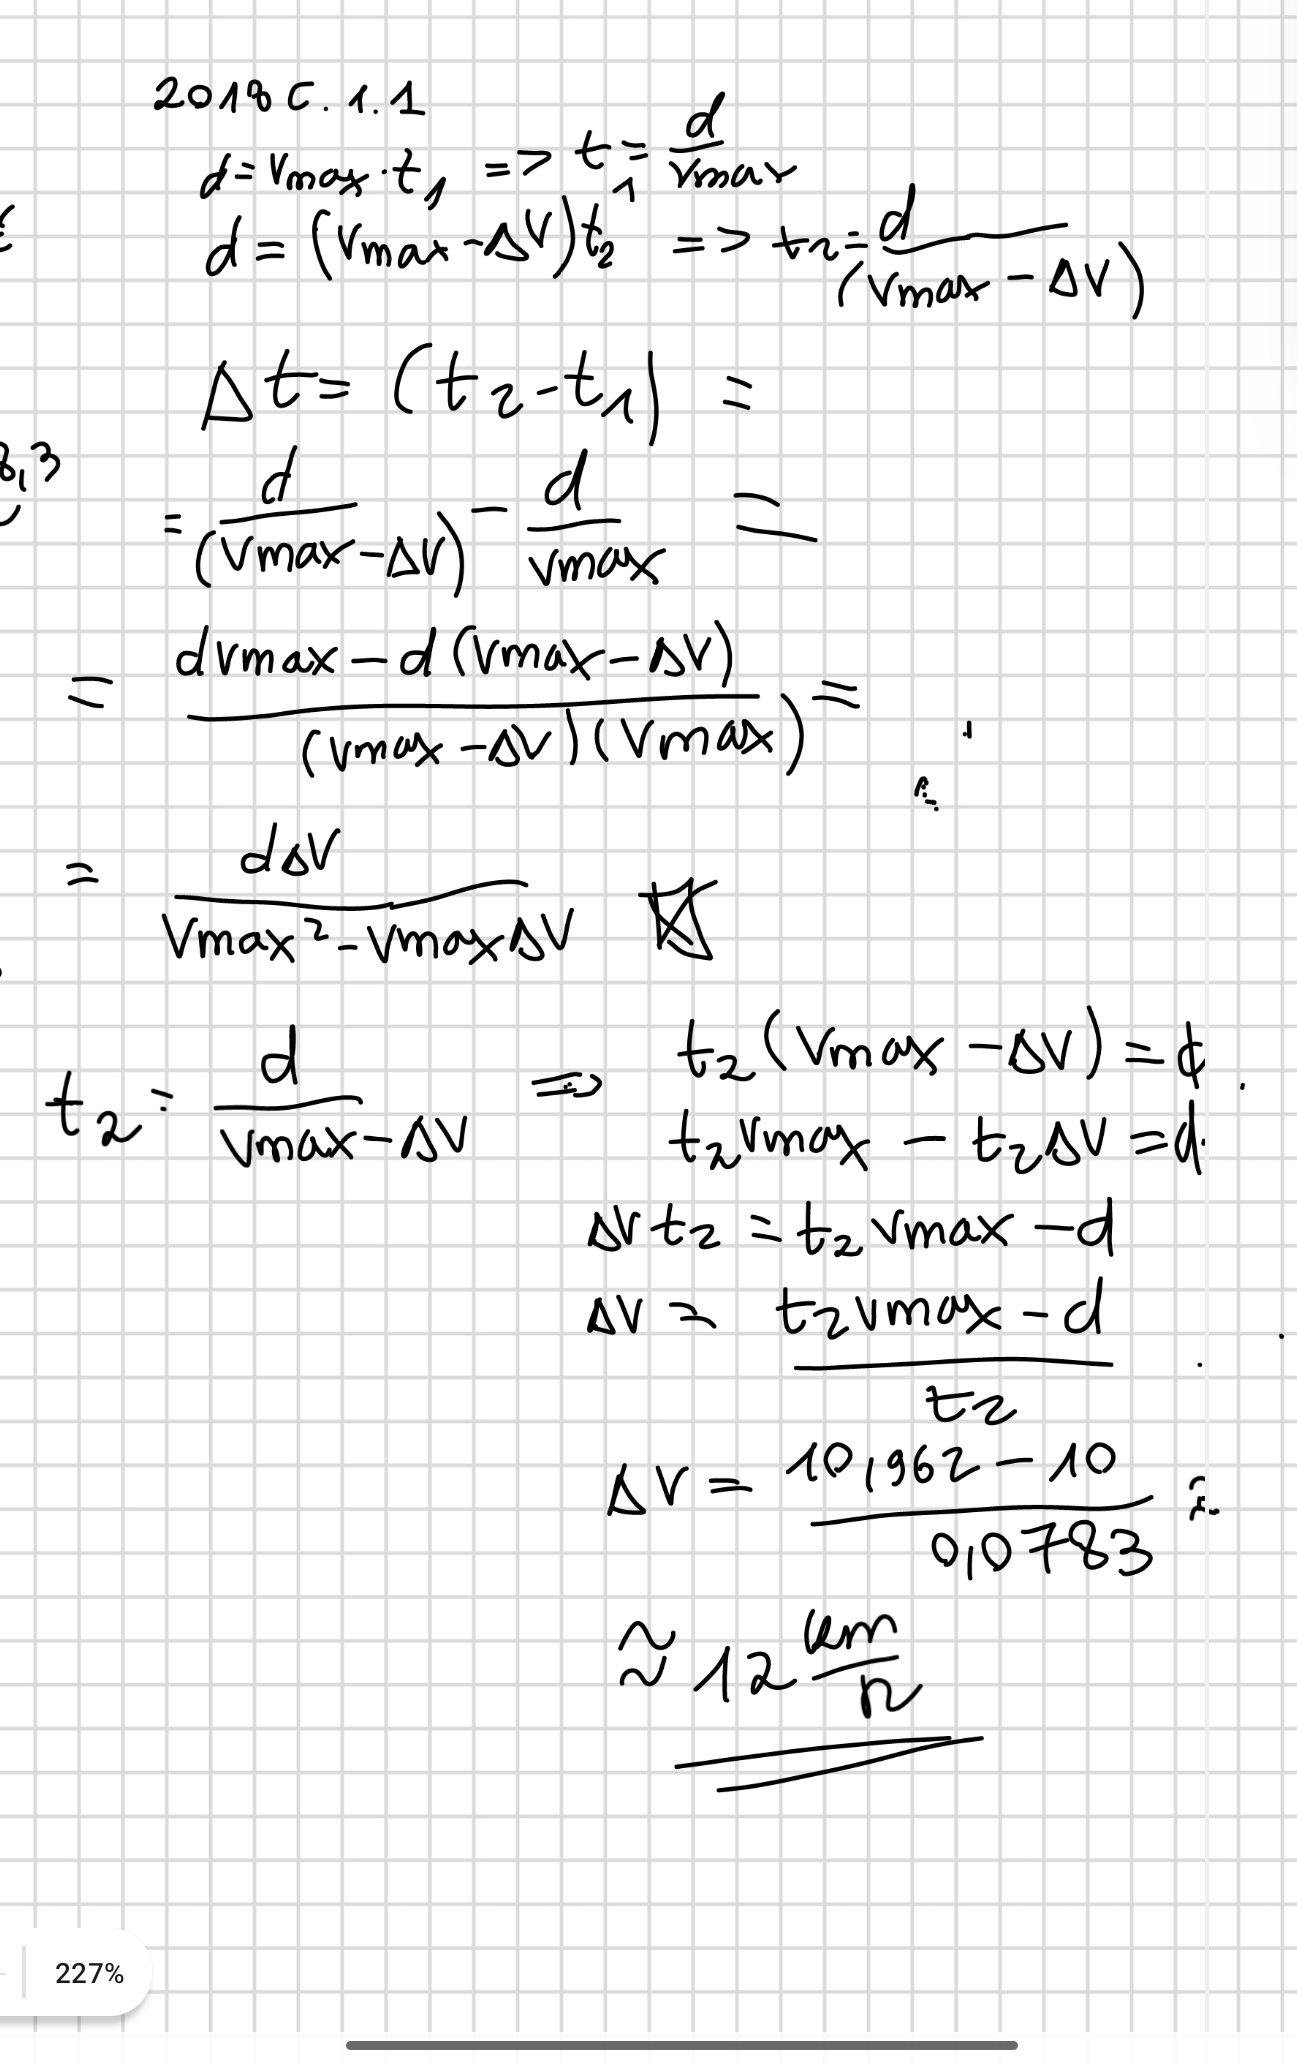 2018 C. 1. 1
d = Vmax · t₁ => t₁ = d / Vmax
d = (Vmax - ΔV)t₂ => t₂ = d / (Vmax - ΔV)
Δt = (t₂ - t₁| =
8,3
= d / (Vmax - ΔV) - d / Vmax =
= dVmax - d(Vmax - ΔV) / (Vmax - ΔV)(Vmax) =
= dΔV / Vmax² - VmaxΔV
t₂ = d / Vmax - ΔV => t₂(Vmax - ΔV) = d
t₂Vmax - t₂ΔV = d
ΔVt₂ = t₂Vmax - d
ΔV = t₂Vmax - d / t₂
ΔV = 10,962 - 10 / 0,0783 ≈
≈ 12 km/h
227%